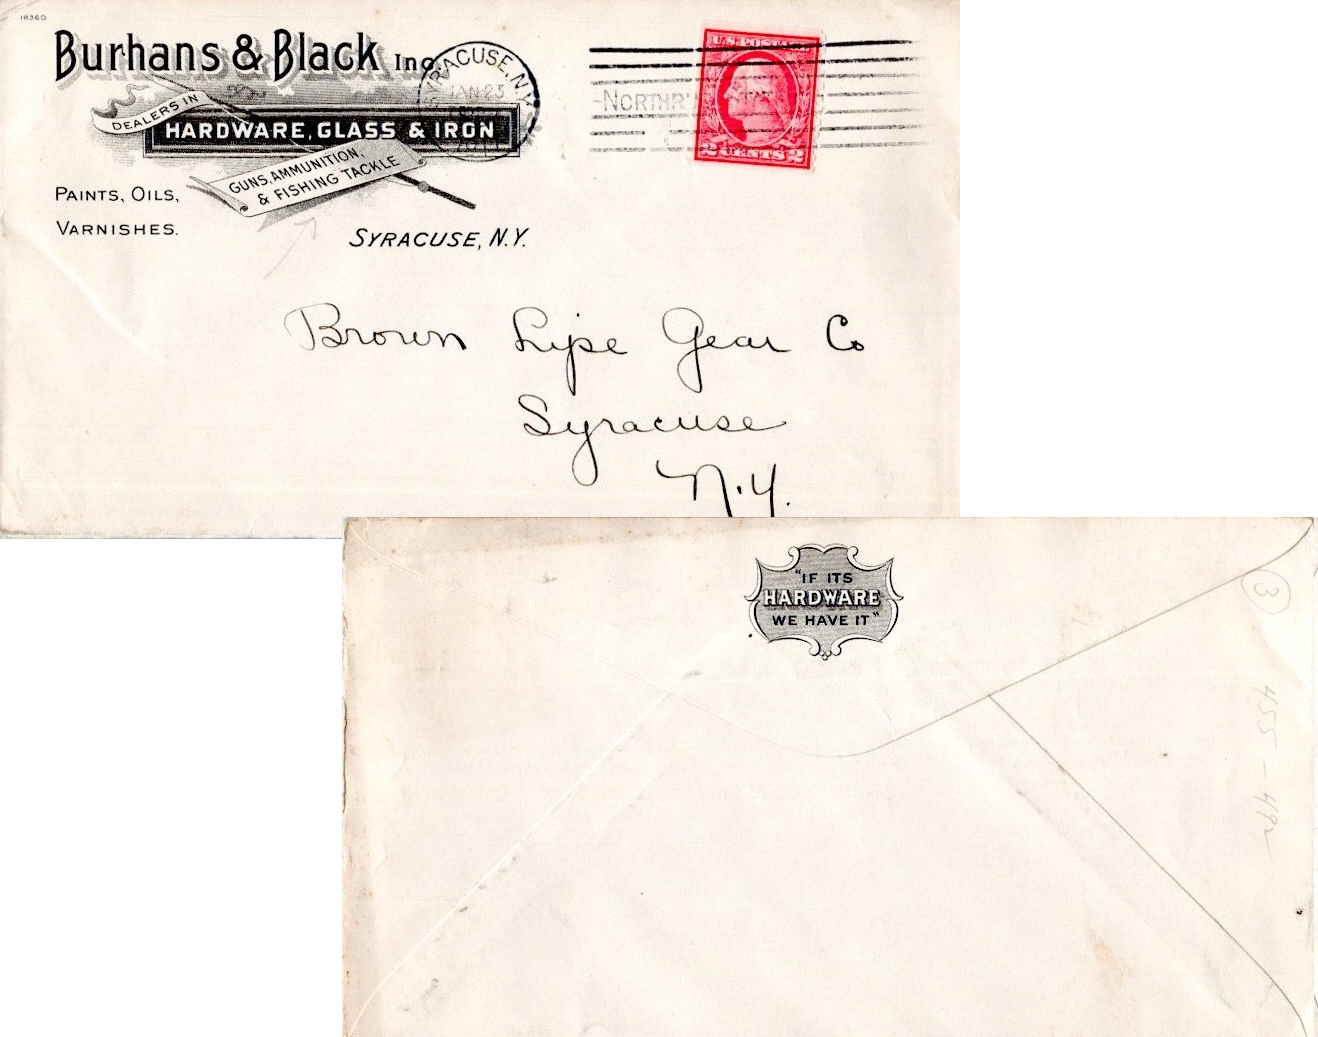 1R360
Burhans & Black Inc.
DEALERS IN
HARDWARE, GLASS & IRON
GUNS, AMMUNITION,
& FISHING TACKLE
PAINTS, OILS,
VARNISHES.
SYRACUSE, N.Y.
SYRACUSE, N.Y.
JAN 23
NORTHR
U.S. POSTAGE
2 CENTS 2
Brown Lipe Gear Co
Syracuse
N.Y.
"IF ITS
HARDWARE
WE HAVE IT"
3
455-492